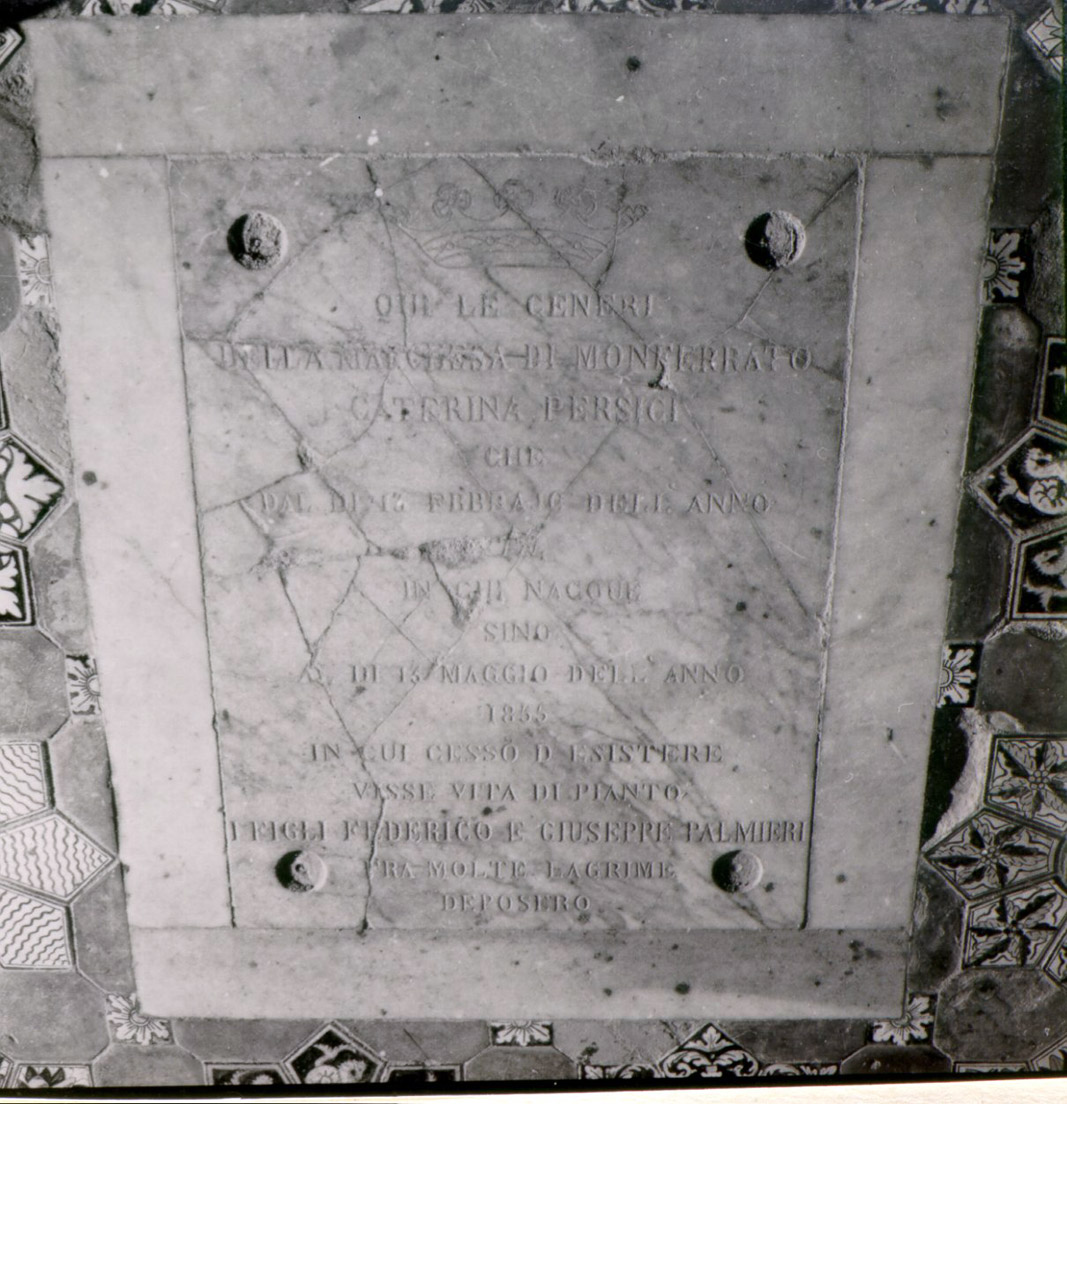 QUI LE CENERI
DELLA MARCHESA DI MONFERRATO
CATERINA PERSICI
CHE
DAL DI 13 FEBBRAJO DELL'ANNO
IN CUI NACQUE
SINO
AL DI 13 MAGGIO DELL'ANNO
1855
IN CUI CESSÒ D'ESISTERE
VISSE VITA DI PIANTO
I FIGLI FEDERICO E GIUSEPPE PALMIERI
FRA MOLTE LAGRIME
DEPOSERO